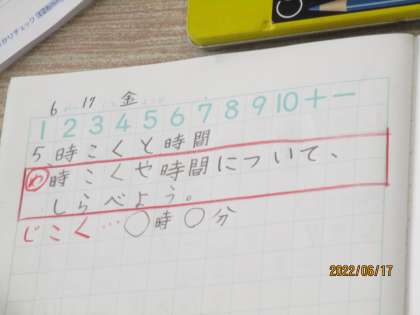 かりチェック
6 17 金
1 2 3 4 5 6 7 8 9 10 + −
5、時こくと時間
め 時こくや時間について、
しらべよう。
じこく…○時○分
2022/06/17